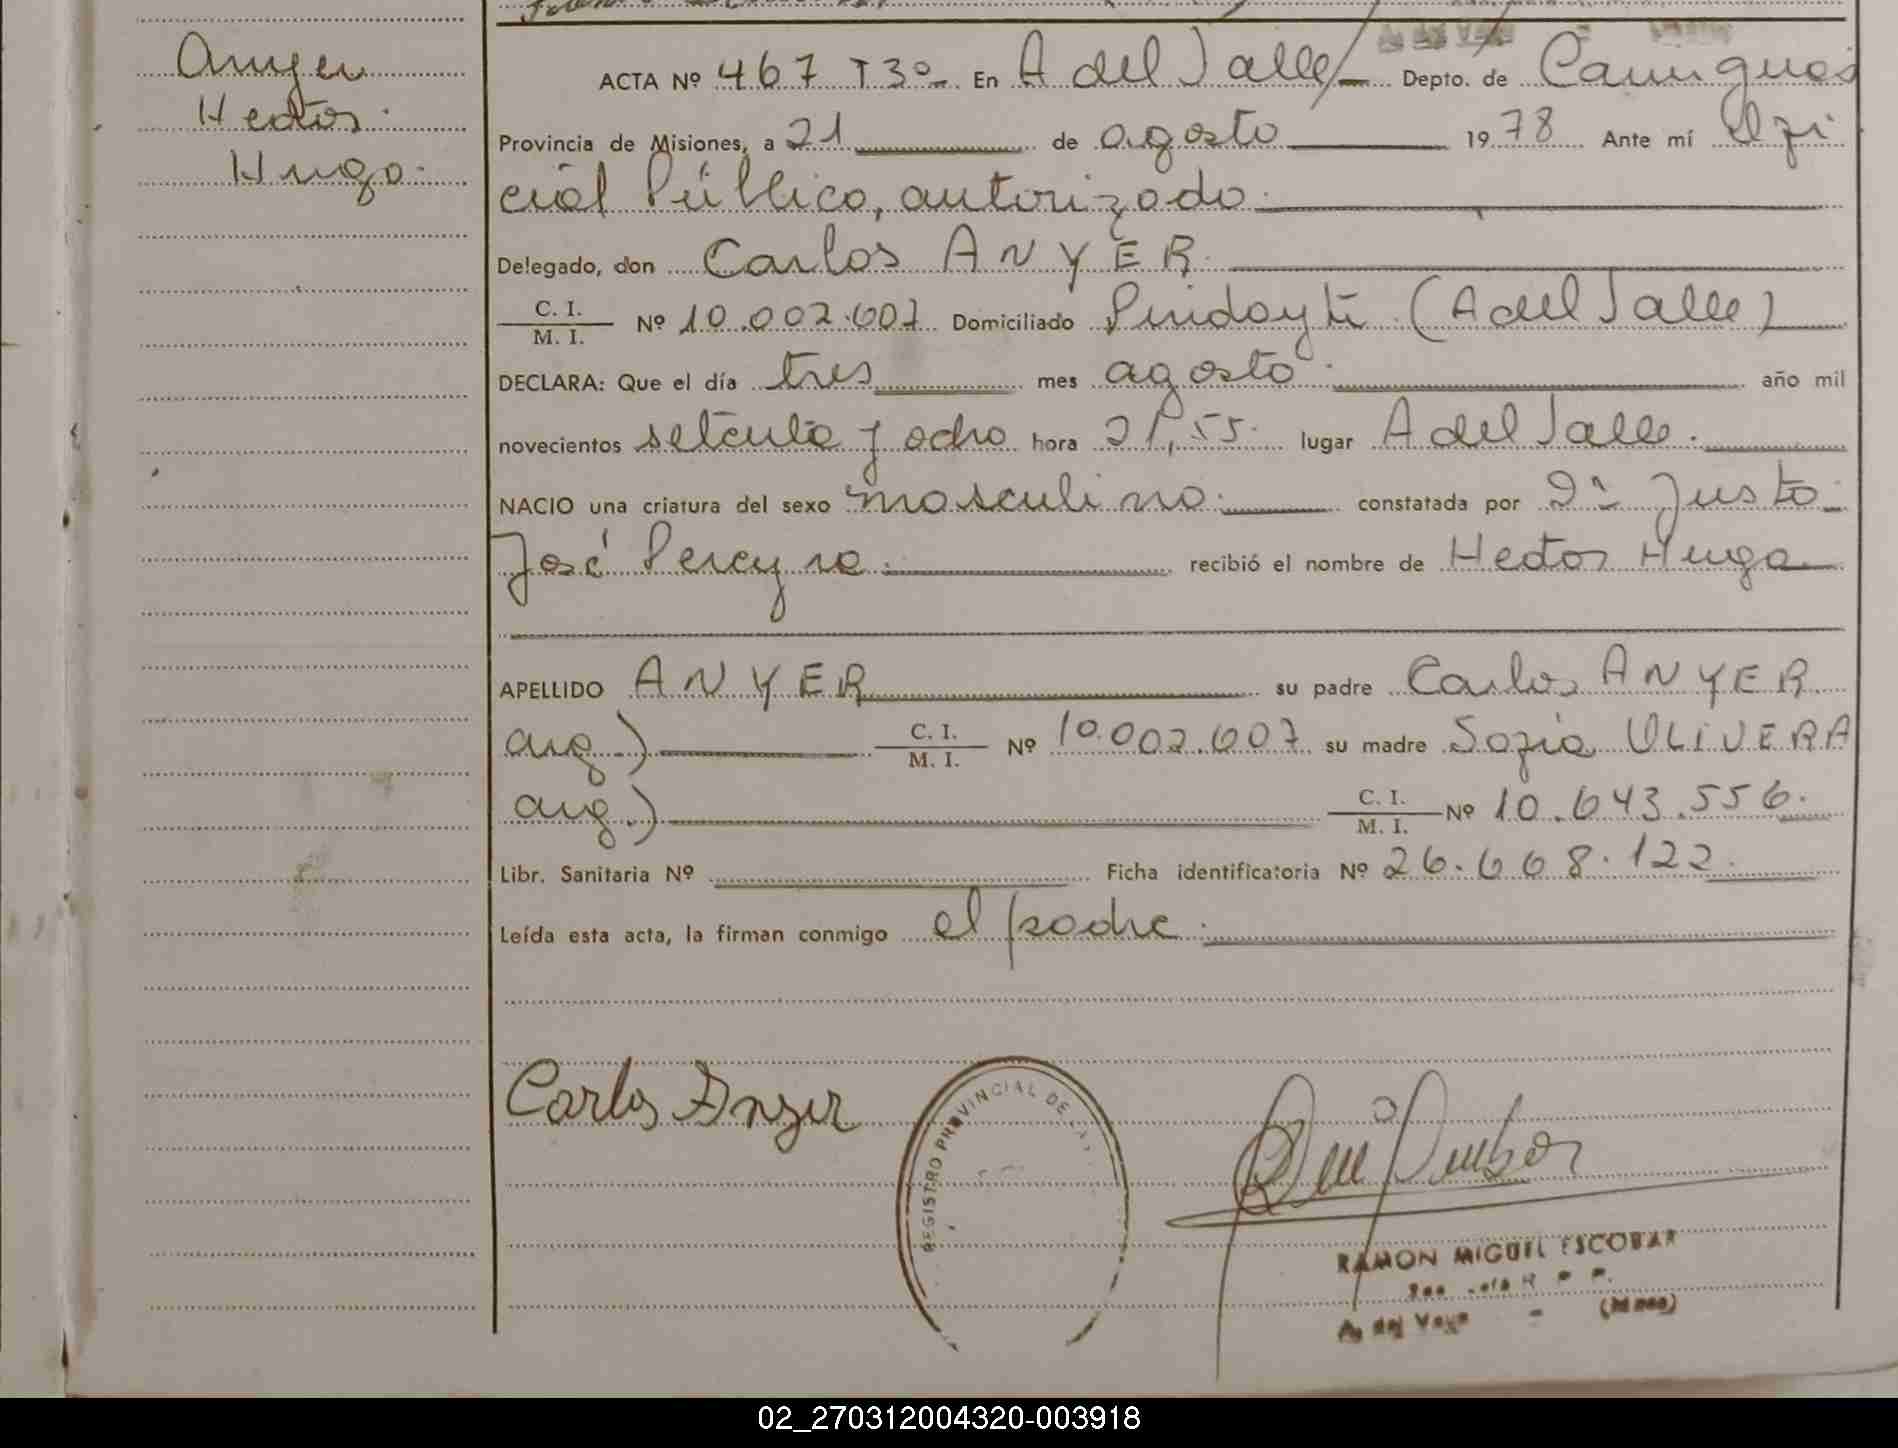 Anyer
Hector
Hugo.
ACTA Nº 467 T3º En A del Valle Depto. de Cainguas
Provincia de Misiones, a 21 de agosto 1978 Ante mí Ofi
cial Público, autorizado.
Delegado, don Carlos ANYER.
C. I.
M. I. Nº 10.002.607 Domiciliado Pindayti (A del Valle)
DECLARA: Que el día tres mes agosto año mil
novecientos setenta y ocho hora 21,55. lugar A del Valle.
NACIO una criatura del sexo masculino. constatada por Dr. Justo
José Pereyra. recibió el nombre de Hector Hugo
APELLIDO ANYER su padre Carlos ANYER
arg.) C. I.
M. I. Nº 10.002.607 su madre Sofia OLIVERA
arg.) C. I.
M. I. Nº 10.643.556.
Libr. Sanitaria Nº Ficha identificatoria Nº 26.668.122.
Leída esta acta, la firman conmigo el padre.
Carlos Anyer
REGISTRO PROVINCIAL DE LAS
RAMON MIGUEL ESCOBAR
02_270312004320-003918